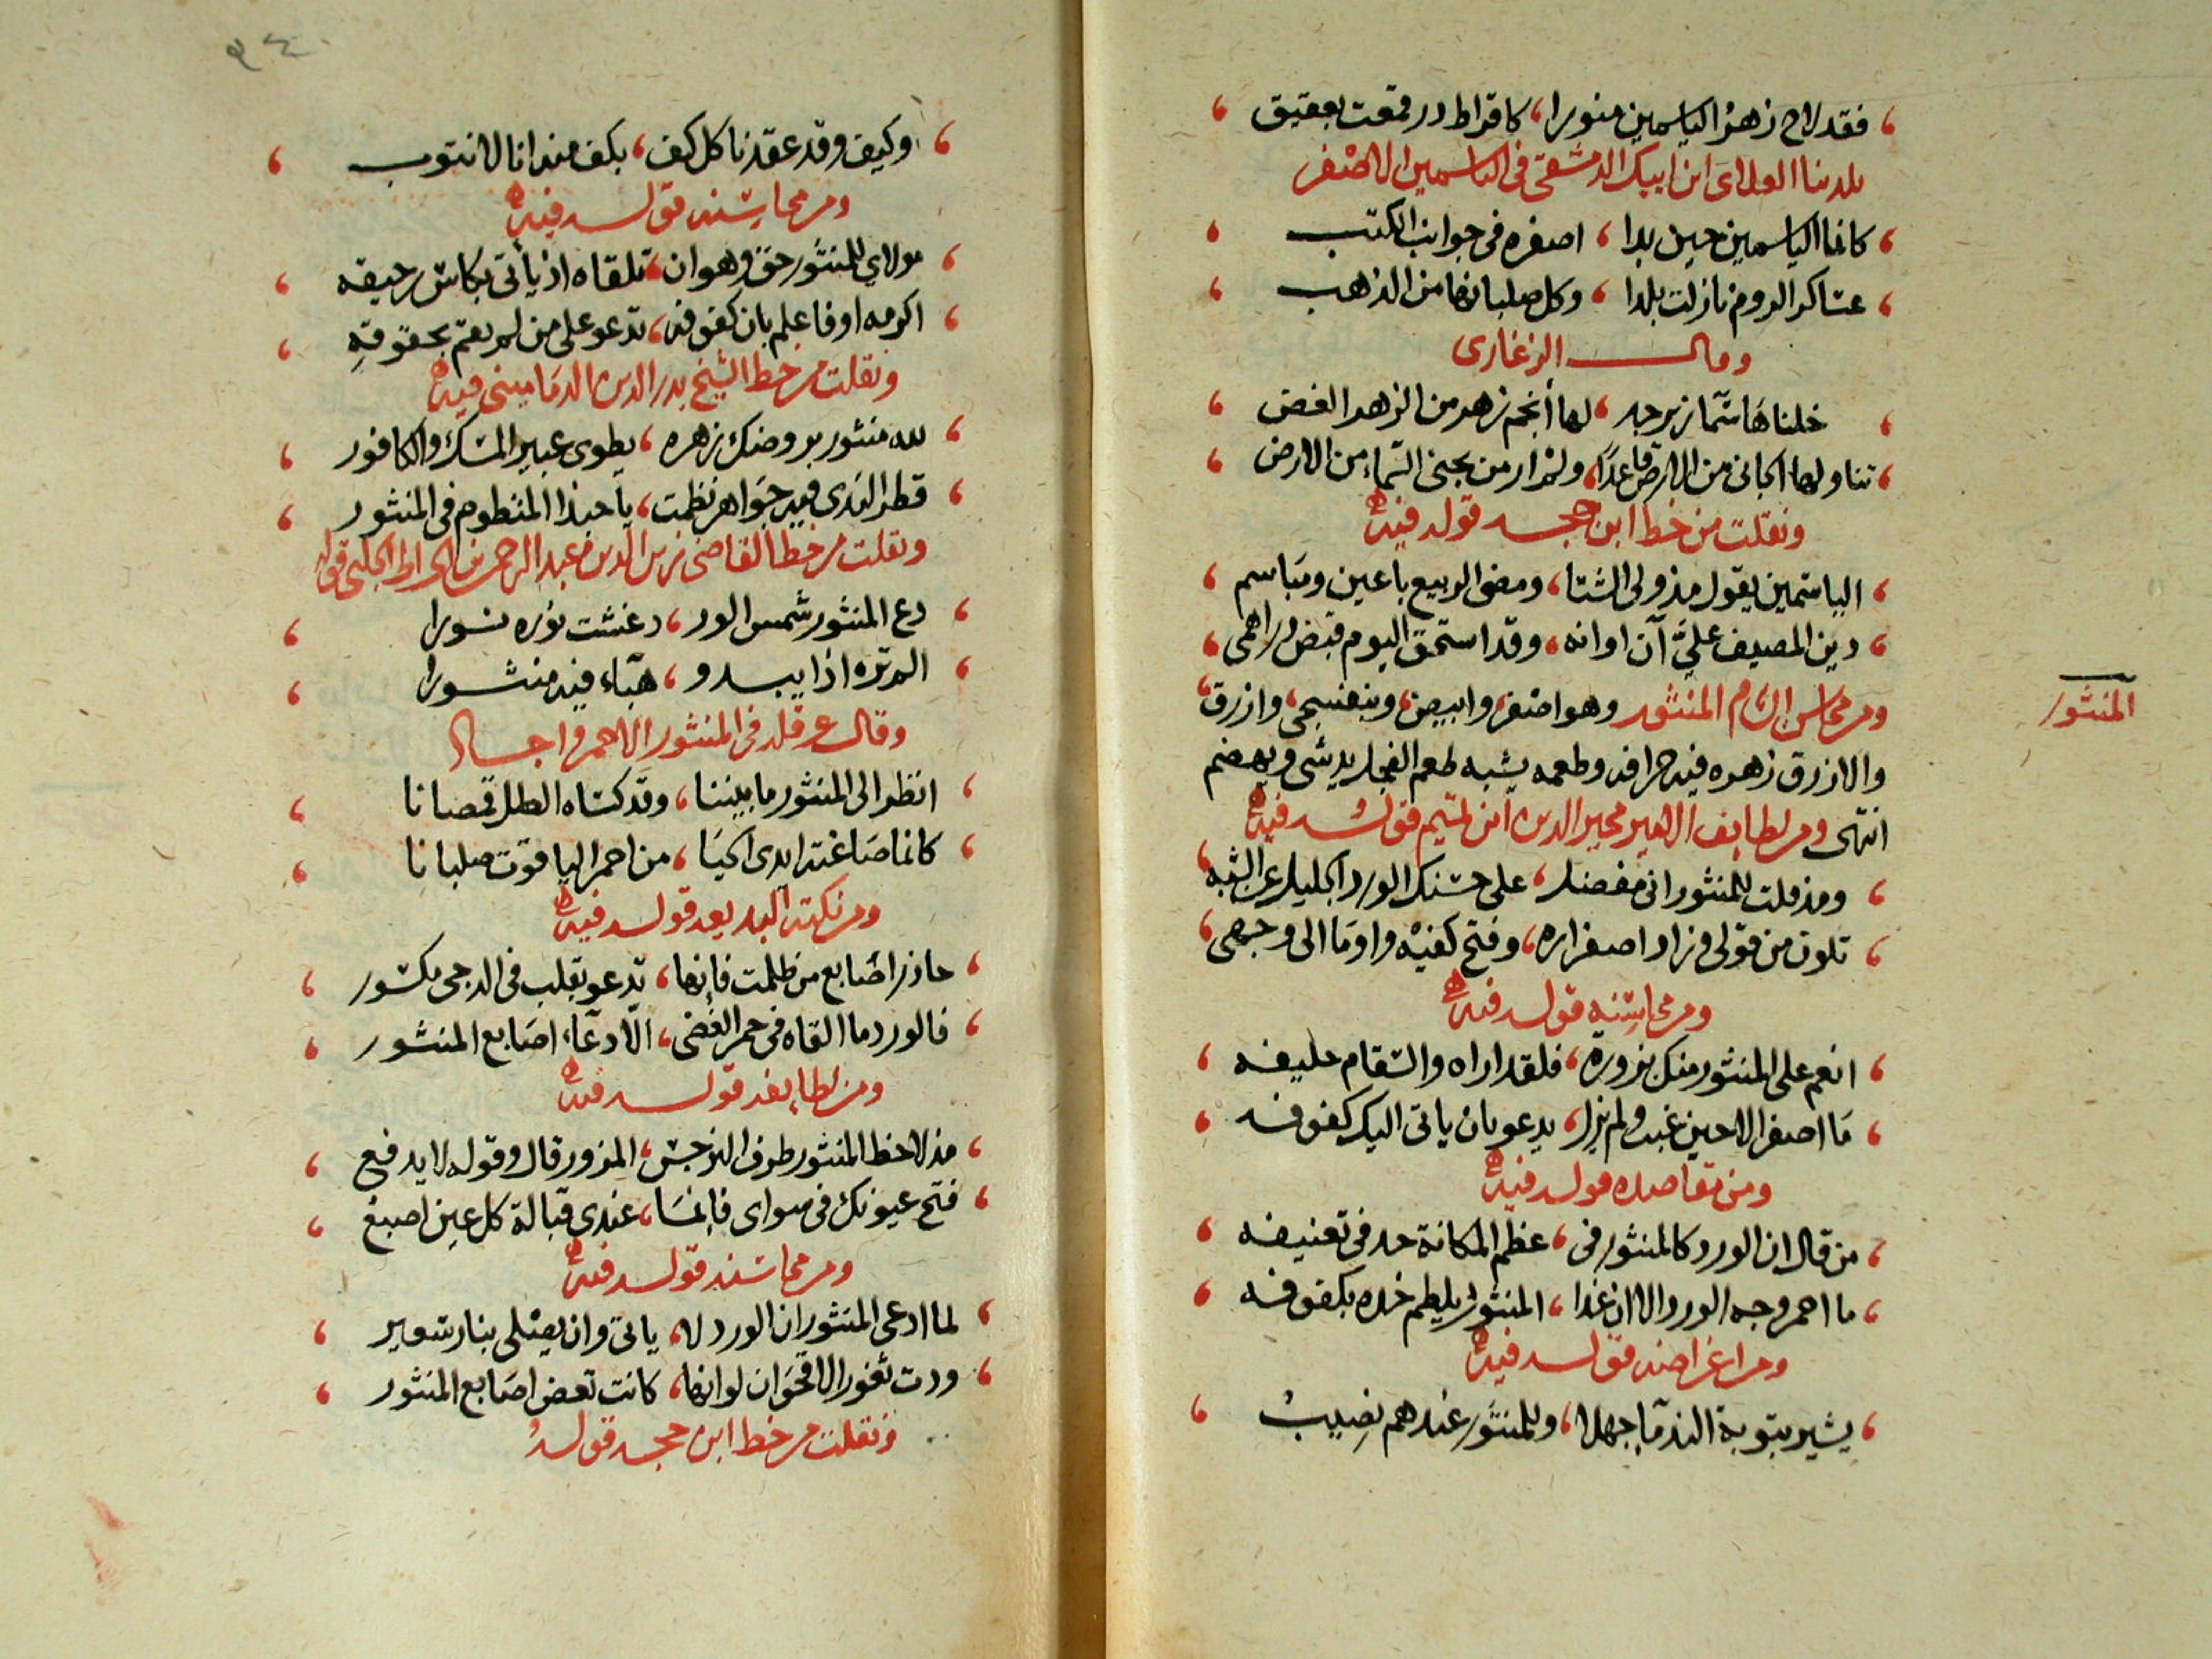 فقد لاح زهر الياسمين منورا، كاقراط در قمعت بعقيق
بلدينا العلاى ابن ايبك الدمشقى فى الياسمين الاصفر
كانما الياسمين حين بدا، اصفره فى جوانب الكتب
عساكر الروم نازلت بلدا، وكل صلبانها من الذهب
وقال الزغارى
خلناها سما زبرجد، لها أنجم زهر من الزهر الغض
تناولها الجانى من الارض قاعدًا، ولم ار من يجنى السماء من الارض
ونقلت من خط ابن حجه قوله فيه
الياسمين يقول مذ ولى الشتا، ومضى الربيع باعين ومباسم
دين المصيف عليَّ آن اوانه، وقد استحق اليوم قبض دراهمى
ومن محاسن الشام المنثور وهو اصفر، وابيض، وبنفسجى، وازرق
المنثور
والازرق زهره فيه حرافه وطعمه يشبه طعم الفجل يدشى ويهضم
انتهى ومن لطايف الامير مجير الدين ابن تميم قوله فيه
ومذ قلت للمنثور انى مفضل، على حسنك الورد الجليل عن الشبه
تلون من قولى وزاد اصفراره، وفتح كفيه واوما الى وجهى
ومن محاسنه قوله فيه
انعم على المنثور منك بزورة، فلقد اراه والسقام حليفه
ما اصفر الا حين غبت ولم يزل، يدعو بان ياتى اليك كفوفه
ومن مقاصده قوله فيه
من قال ان الورد كالمنثور فى، عظم المكانة جد فى تعنيفه
ما احمر وجه الورد الا ان غدا، المنثور يلطم خده بكفوفه
ومن اغراضه قوله فيه
يشير بتوبة الندما جهلا، وللمنثور عندهم نصيب
٩٤
وكيف وقد عقدنا كل كف، بكف منه انا لا نتوب
ومن محاسنه قوله فيه
مولاي للمنثور حق وهو ان، تلقاه اذ يأتى بكاس رحيقه
اكرمه اوفاعلم بان كفوفه، تدعو على من لم يقم بحقوقه
ونقلت من خط الشيخ بدر الدين الدمامينى فيه
لله منثور بروضك زهره، يطوى عبير المسك والكافور
قطر الندى فيه جواهر نظمت، يا حبذا المنظوم فى المنثور
ونقلت من خط القاضى زين الدين عبد الرحمن بن الخراط الحلبى قوله
دع المنثور شمس الور، د غشت نوره نورا
الم تره اذا يبدو، هباء فيه منثورا
وقال عرقله فى المنثور الاحمر واجاد
انظر الى المنثور ما بيننا، وقد كساه الطل قمصانا
كانما صاغته ايدى الحيا، من احمر الياقوت صلبانا
ومن نكته البديعه قوله فيه
حاذر اصابع من ظلمت فإنها، تدعو بقلب فى الدجى مكسور
فالورد ما القاه فى جمر الغضى، الا دعاء اصابع المنثور
ومن لطايفه قوله فيه
مذ لاحظ المنثور طرف النرجس، المزور قال وقوله لا يدفع
فتح عيونك فى سواى فإنما، عندى قبالة كل عين اصبع
ومن محاسنه قوله فيه
لما ادعى المنثور ان الورد لا، ياتى وان يصلى بنار سعير
ودت ثغور الاقحوان لو انها، كانت تعض اصابع المنثور
ونقلت من خط ابن حجه قوله